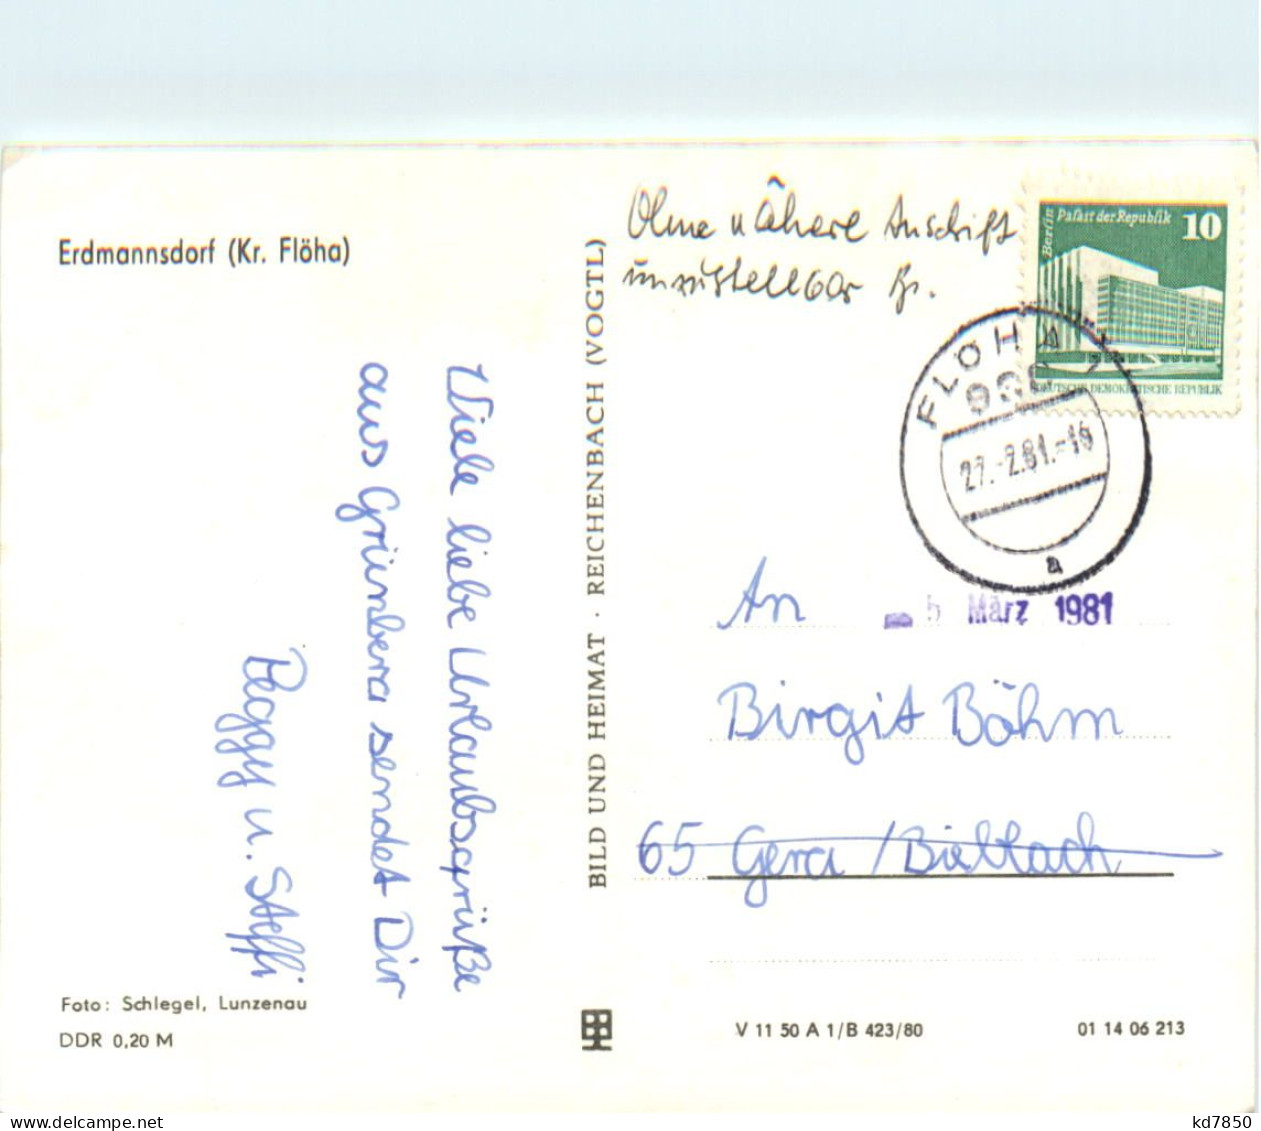 Erdmannsdorf (Kr. Flöha)
Viele liebe Urlaubsgrüße
aus Grünberg sendet Dir
Peggy u. Steffi
Foto: Schlegel, Lunzenau
DDR 0,20 M
BILD UND HEIMAT · REICHENBACH (VOGTL)
Ohne nähere Anschrift
unzustellbar
Berlin
Palast der Republik
10
DEUTSCHE DEMOKRATISCHE REPUBLIK
FLÖHA
27.-2.81.-16
a
5. März 1981
An
Birgit Böhm
65 Gera / Bieblach
V 11 50 A 1/B 423/80
01 14 06 213
www.delcampe.net
kd7850